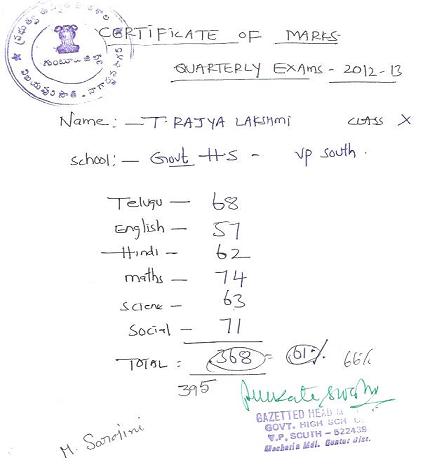 CERTIFICATE OF MARKS
QUARTERLY EXAMS - 2012-13
గుంటూరు జిల్లా
Name: — T. RAJYA LAKSHMI CLASS X
School: — Govt HS - VP South.
Telugu — 68
English — 57
Hindi — 62
maths — 74
Science — 63
Social — 71
TOTAL : 368 = 61% 66%
395
GAZETTED HEAD M
GOVT. HIGH SCH
V.P. SOUTH - 522439
Macherla Mdl. Guntur Dist.
M. Sarojini